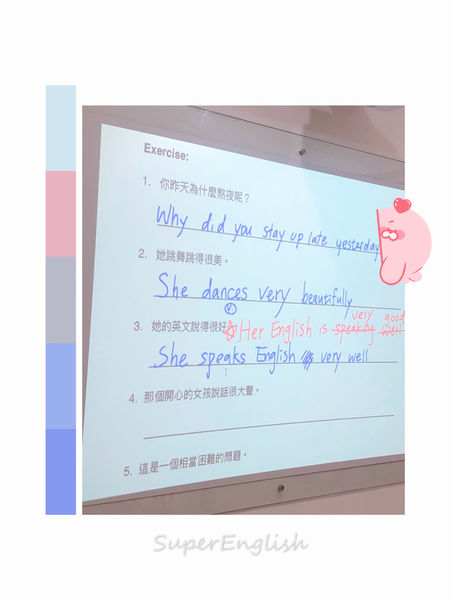 Exercise:
1. 你昨天為什麼熬夜呢？
Why did you stay up late yesterday
2. 她跳舞跳得很美。
She dances very beautifully
(v)
very good
3. 她的英文說得很好 ☆Her English is speaking well
She speaks English very well
4. 那個開心的女孩說話很大聲。
5. 這是一個相當困難的問題。
SuperEnglish